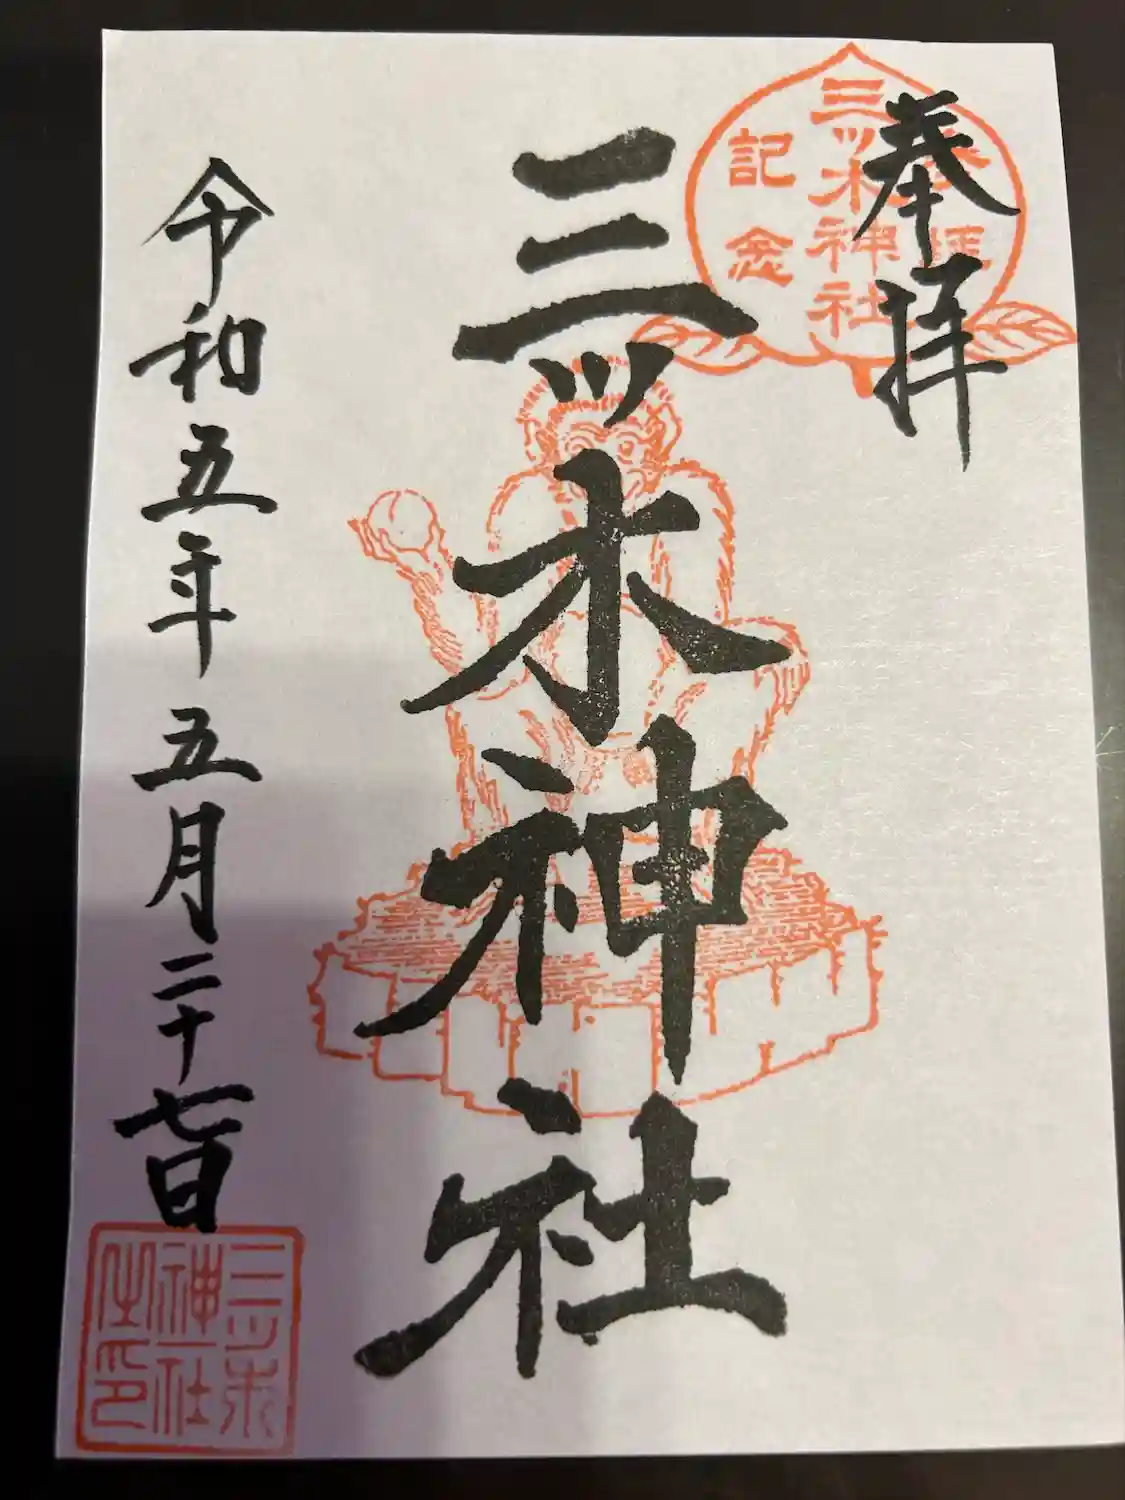 奉拝
参拝
三ッ木神社
記念
三ッ木神社
令和五年五月二十七日
三ッ木
神社
之印